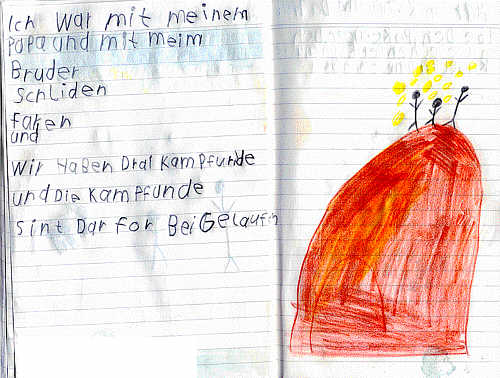 Ich war mit meinem
Papa und mit meim
Bruder
Schliden
faren
und
wir haben Drai Kampfunde
und Die Kampfunde
sint Dar for Bei Gelaufn